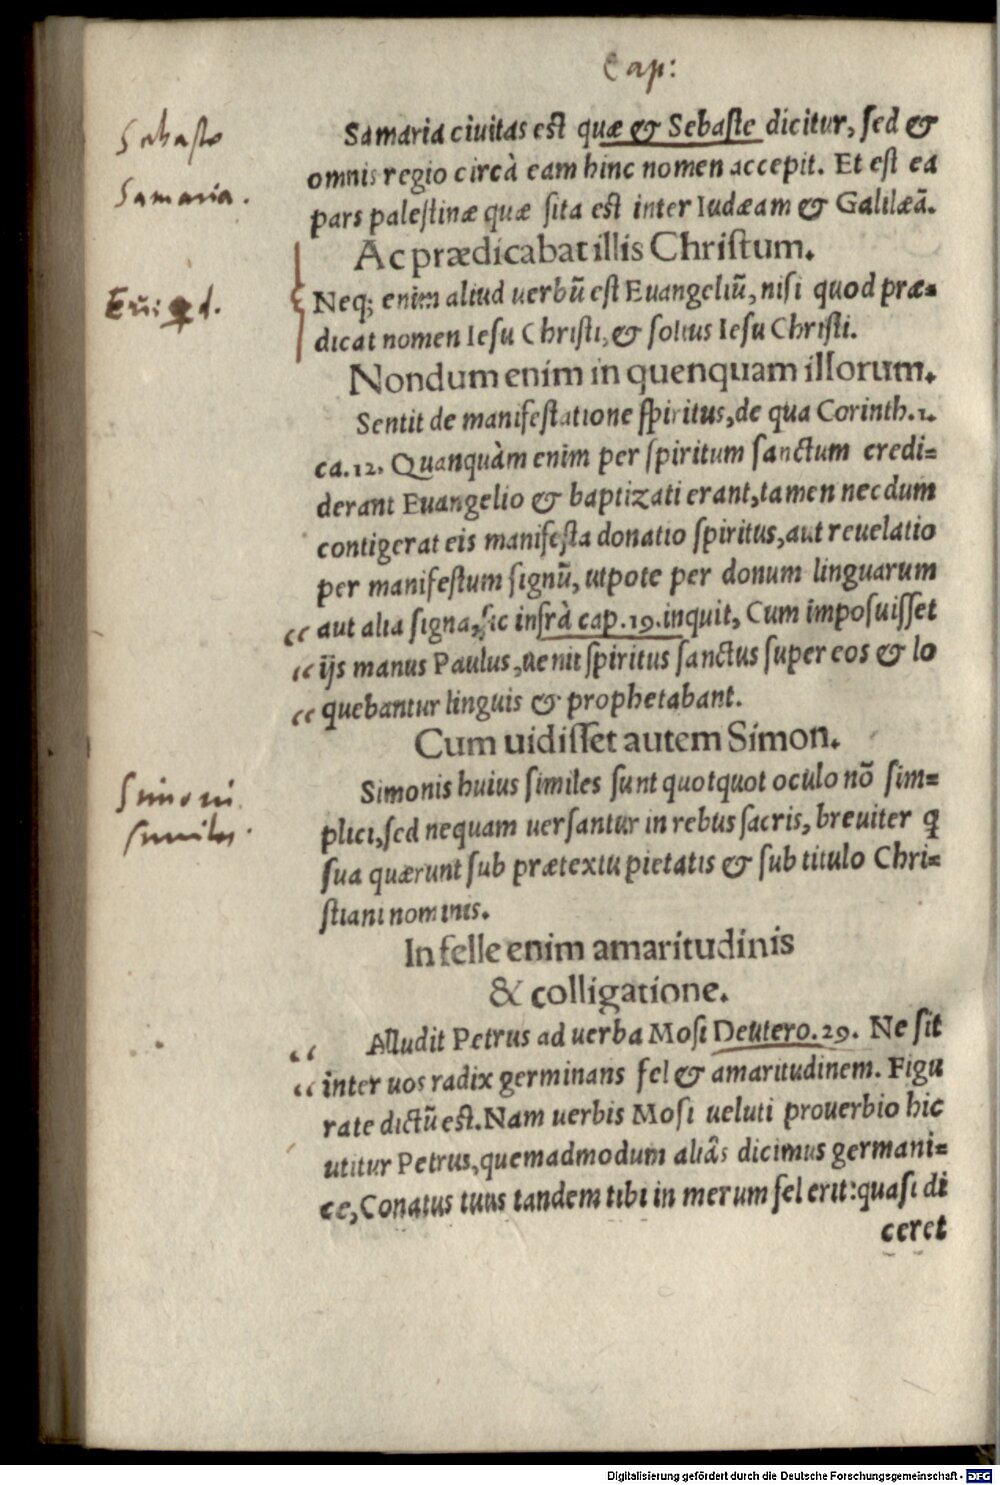 Cap:
Sebaste
Samaria.
Samaria ciuitas est quæ & Sebaste dicitur, sed &
omnis regio circà eam hinc nomen accepit. Et est ea
pars palestinæ quæ sita est inter Iudæam & Galilæã.
Ac prædicabat illis Christum.
Neq; enim aliud uerbũ est Euangeliũ, nisi quod præ-
dicat nomen Iesu Christi, & solius Iesu Christi.
Nondum enim in quenquam illorum.
Sentit de manifestatione spiritus, de qua Corinth. 1.
ca. 12. Quanquàm enim per spiritum sanctum credi-
derant Euangelio & baptizati erant, tamen necdum
contigerat eis manifesta donatio spiritus, aut reuelatio
per manifestum signũ, utpote per donum linguarum
aut alia signa, sic infrà cap. 19. inquit, Cum imposuisset
ijs manus Paulus, uenit spiritus sanctus super eos & lo
quebantur linguis & prophetabant.
Cum uidisset autem Simon.
Simoni
similes.
Simonis huius similes sunt quotquot oculo nõ sim-
plici, sed nequam uersantur in rebus sacris, breuiter q̃
sua quærunt sub prætextu pietatis & sub titulo Chri-
stiani nominis.
In felle enim amaritudinis
& colligatione.
Alludit Petrus ad uerba Mosi Deutero. 29. Ne sit
inter uos radix germinans fel & amaritudinem. Figu
rate dictũ est. Nam uerbis Mosi ueluti prouerbio hic
utitur Petrus, quemadmodum aliâs dicimus germani-
ce, Conatus tuus tandem tibi in merum fel erit: quasi di
ceret
Digitalisierung gefördert durch die Deutsche Forschungsgemeinschaft - DFG